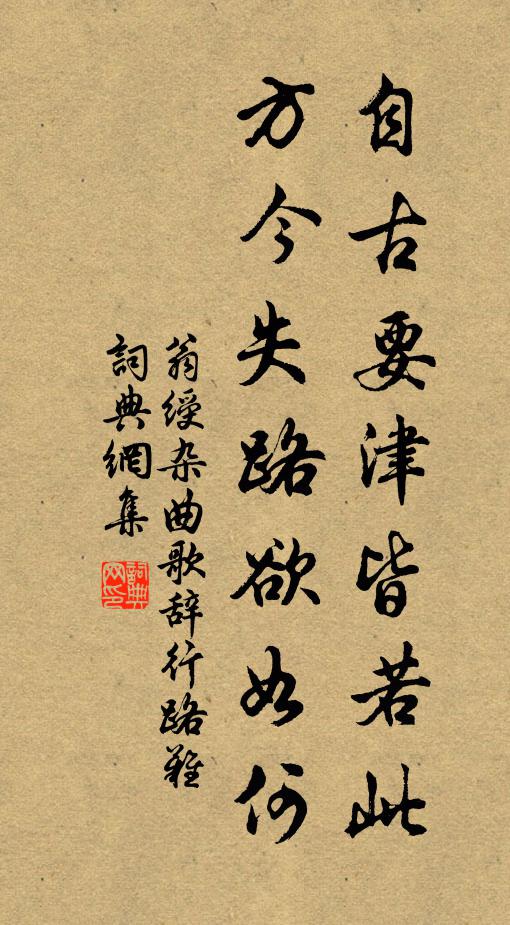 自古要津皆若此
方今失路欲如何
翁綬杂曲歌辞行路难
詞典網集
詞典网印